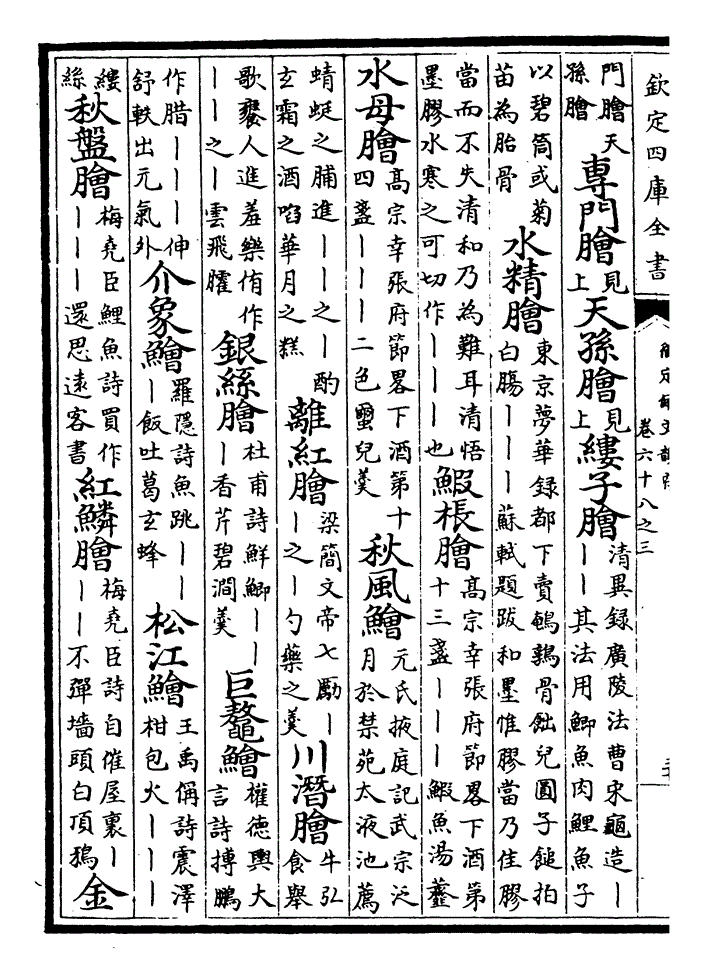 欽定四庫全書
御定佩文韻府
卷六十八之三
門膾天孫膾 専門膾 見上 天孫膾 見上 縷子膾 清異録廣陵法曹宋龜造｜｜｜其法用鯽魚肉鯉魚子
以碧筒或菊苗為胎骨 水精膾 東京夢華録都下賣鵪鶉骨飿兒圓子鎚拍白腸｜｜｜蘇軾題跋和墨惟膠當乃佳膠
當而不失清和乃為難耳清悟墨膠水寒之可切作｜｜｜也 鰕棖膾 高宗幸張府節畧下酒第十三盞｜｜｜鰕魚湯虀
水母膾 高宗幸張府節畧下酒第十四盞｜｜｜二色蠒兒羹 秋風鱠 元氏掖庭記武宗泛月於禁苑太液池薦
蜻蜓之脯進｜｜之｜酌玄霜之酒㗖華月之糕 離紅膾 梁簡文帝七勵｜｜之｜勺藥之羹 川潛膾 牛弘食舉
歌饔人進羞樂侑作｜｜之｜雲飛臛 銀絲膾 杜甫詩鮮鯽｜｜｜香芹碧澗羹 巨鼇鱠 權德輿大言詩搏鵬
作腊｜｜｜伸舒軼出元氣外 介象鱠 羅隱詩魚跳｜｜｜飯吐葛玄蜂 松江鱠 王禹偁詩震澤柑包火｜｜｜
縷絲 秋盤膾 梅堯臣鯉魚詩買作｜｜｜還思遠客書 紅鱗膾 梅堯臣詩自催屋裏｜｜｜不彈墻頭白頂鴉 金